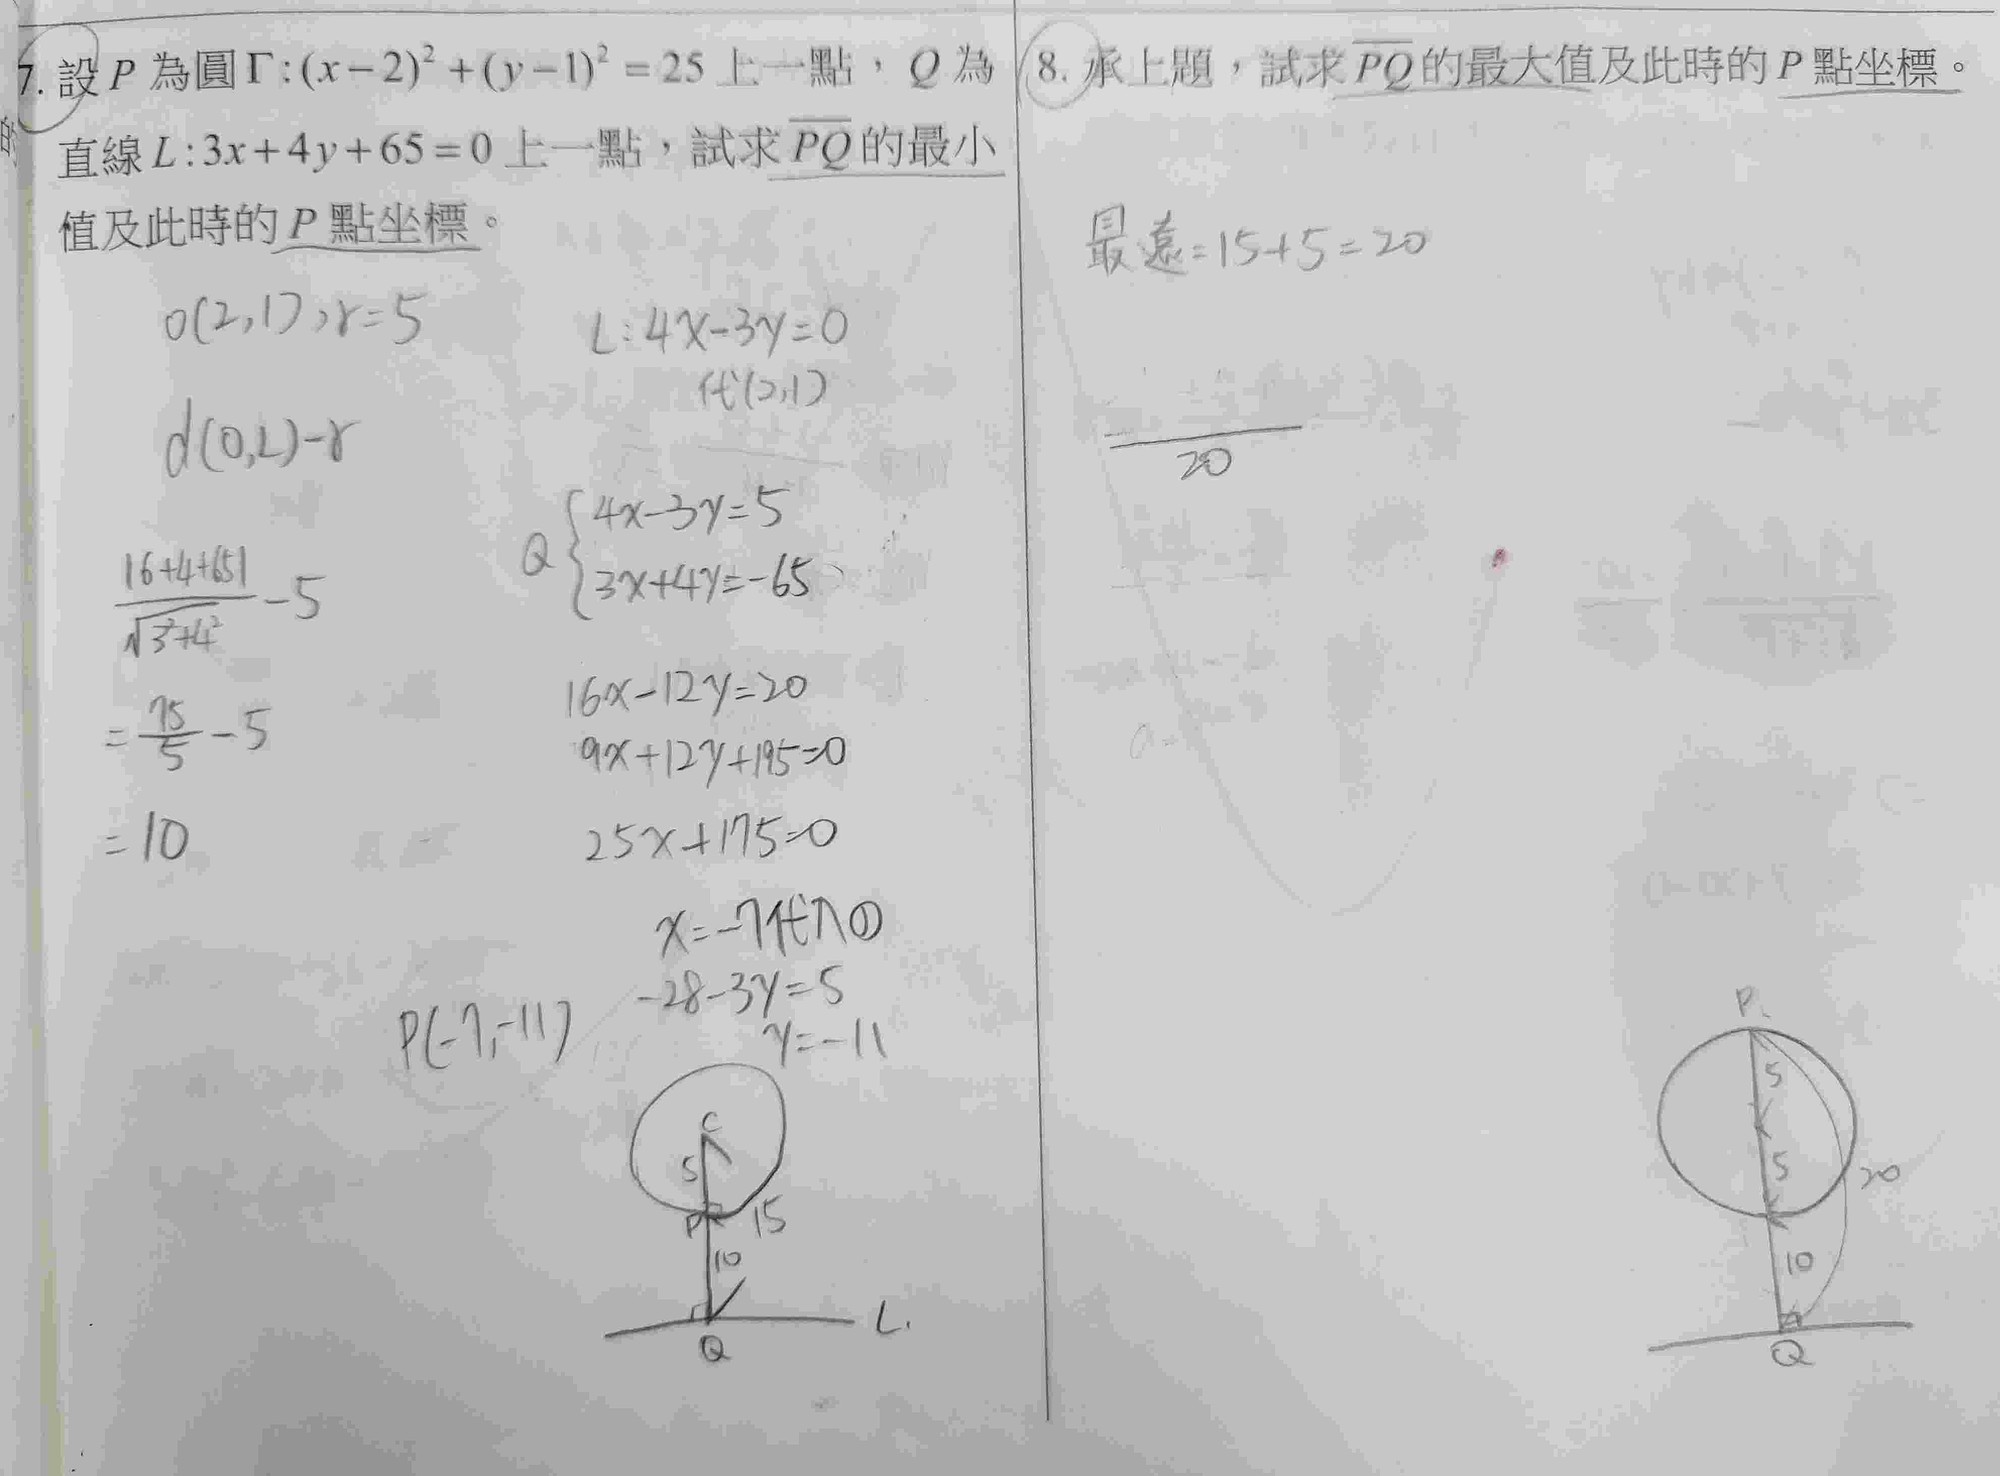 7. 設 P 為圓 Γ:(x−2)²+(y−1)²=25 上一點，Q 為
直線 L:3x+4y+65=0 上一點，試求 \overline{PQ} 的最小
值及此時的 P 點坐標。
O(2,1),r=5
d(O,L)-r
\frac{|6+4+65|}{\sqrt{3²+4²}}-5
=\frac{75}{5}-5
=10
L:4x-3y=0
代(2,1)
Q { 4x-3y=5
3x+4y=-65
16x-12y=20
9x+12y+195=0
25x+175=0
x=-7代入①
-28-3y=5
y=-11
P(-7,-11)
C
5
P
15
10
L.
Q
8. 承上題，試求 \overline{PQ} 的最大值及此時的 P 點坐標。
最遠=15+5=20
20
P
5
5
20
10
Q